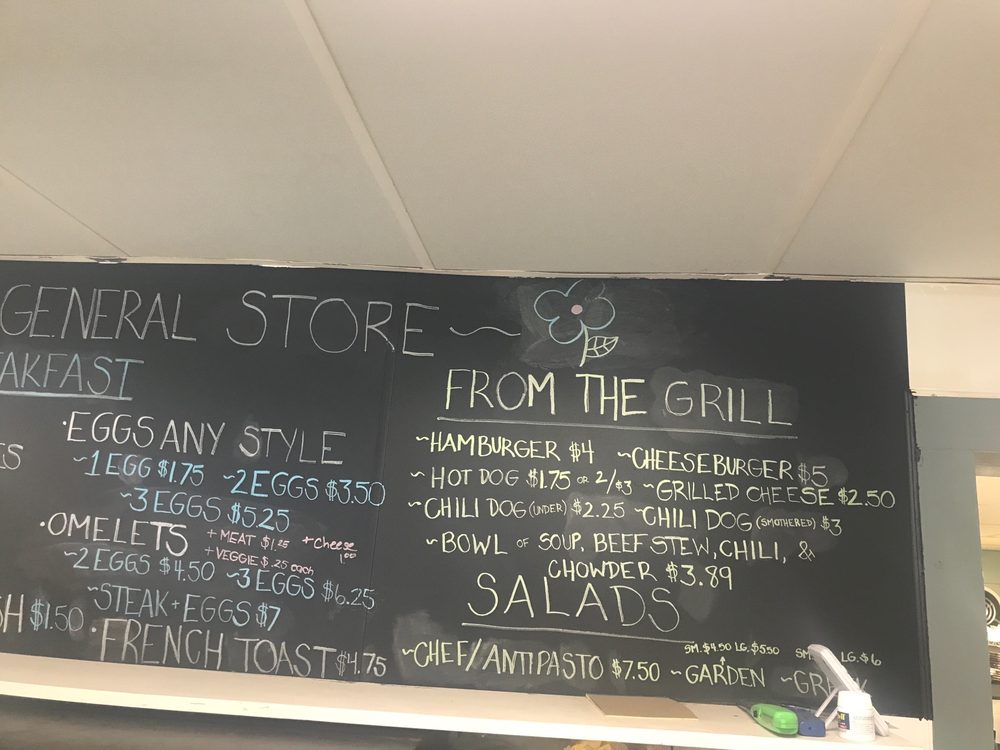 GENERAL STORE
AKFAST
·EGGS ANY STYLE
~1 EGG $1.75 ~2 EGGS $3.50
~3 EGGS $5.25
·OMELETS + MEAT $1.25 + Cheese 1.00
+ VEGGIE $.25 each
~2 EGGS $4.50 ~3 EGGS $6.25
~STEAK + EGGS $7
SH $1.50 ·FRENCH TOAST $4.75
FROM THE GRILL
~HAMBURGER $4 ~CHEESEBURGER $5
~HOT DOG $1.75 OR 2/$3 ~GRILLED CHEESE $2.50
~CHILI DOG (UNDER) $2.25 ~CHILI DOG (SMOTHERED) $3
~BOWL OF SOUP, BEEF STEW, CHILI, &
CHOWDER $3.89
SALADS
SM. $4.50 LG. $5.50 SM. LG. $6
~CHEF/ANTIPASTO $7.50 ~GARDEN ~GR